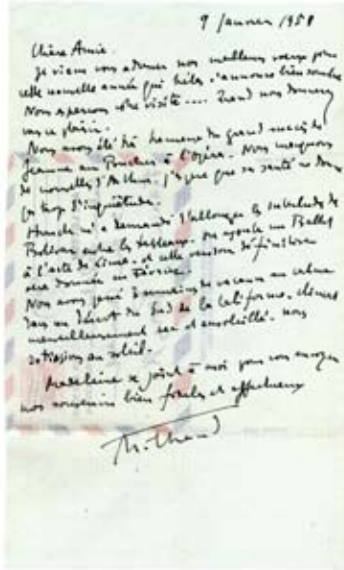 9 Janvier 1951
Chère Amie.
Je viens vous adresser nos meilleurs vœux pour
cette nouvelle année qui hélas s'annonce bien sombre
Nous espérons votre visite.... Quand nous donnerez
vous ce plaisir.
Nous avons été très heureux du grand succès de
Jeanne au Bûcher à l'Opéra. Nous manquons
de nouvelles d'Arthur. J'espère que sa santé ne donne
pas trop d'inquiétude.
m'a demandé d'allonger les interludes de
Bolivar entre les tableaux. On ajoute un Ballet
à l'acte de Lima. et cette version définitive
sera donnée en Février.
Nous avons passé 2 semaines de vacances au calme
dans un désert du Sud de la Californie. climat
merveilleusement sec et ensoleillé. nous
rotissions au soleil.
Madeleine se joint à moi pour vous envoyer
nos souvenirs bien fidèles et affectueux
Milhaud